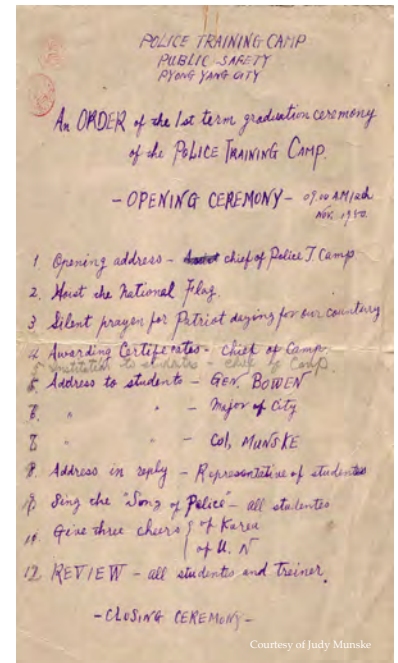 POLICE TRAINING CAMP
PUBLIC SAFETY
PYONG YANG CITY
An ORDER of the 1st term graduation ceremony
of the POLICE TRAINING CAMP.
- OPENING CEREMONY - 09.00 AM
Nov. 1950
1. Opening address - chief of Police T. Camp
2. Hoist the National Flag.
3. Silent prayer for Patriot dying for our country
4. Awarding Certificates - chief of Camp.
to students - chief of Camp.
Address to students - GEN. BOWEN
" " - Major of City
" " - Col, MUNSKE
Address in reply - Representative of studentes
Sing the "Song of Police" - all studentes
11. Give three cheers { of Korea
of U. N
12. REVIEW - all studentes and treiner.
- CLOSING CEREMONY -
Courtesy of Judy Munske